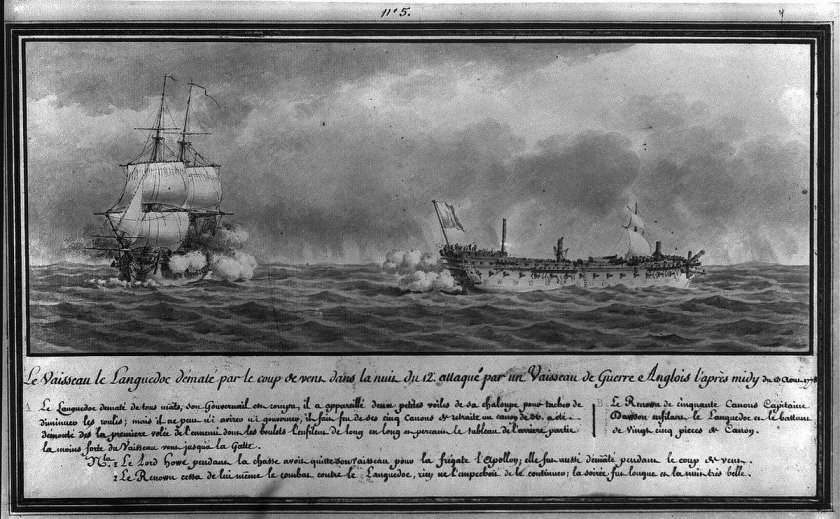 n.º 5.
4
Le Vaisseau le Languedoc dématé par le coup de vent dans la nuit du 12. attaqué par un Vaisseau de Guerre Anglois l'après midy du 13 Aout 1778
A. Le Languedoc dematé de tous mâts, son Gouvernail est rompu, il a appareillé deux petites voiles de sa chaloupe pour tacher de
diminuer les roulis; mais il ne peut ni ariver ni gouverner, il fait feu de ses cinq Canons de retraite un canon de 36. a été
démonté des la premiere volée de l'ennemi dont les boulets l'enfilent de long en long en percant le tableau de l'arriere partie
la moins forte du Vaisseau vont jusqu'a la Gatte.
B. Le Renown de cinquante Canons Capitaine
Dawson enfilant le Languedoc et le battant
de Vingt cinq pieces de Canon.
Nta. 1 Le Lord Howe pendant la chasse avoit quitté son Vaisseau pour la frégate l'Apollon; elle fut aussi dématé pendant le coup de vent.
2 Le Renown cessa de lui même le combat contre le Languedoc, rien ne l'empechoit de le continuer; la soirée fut longue et la nuit très belle.